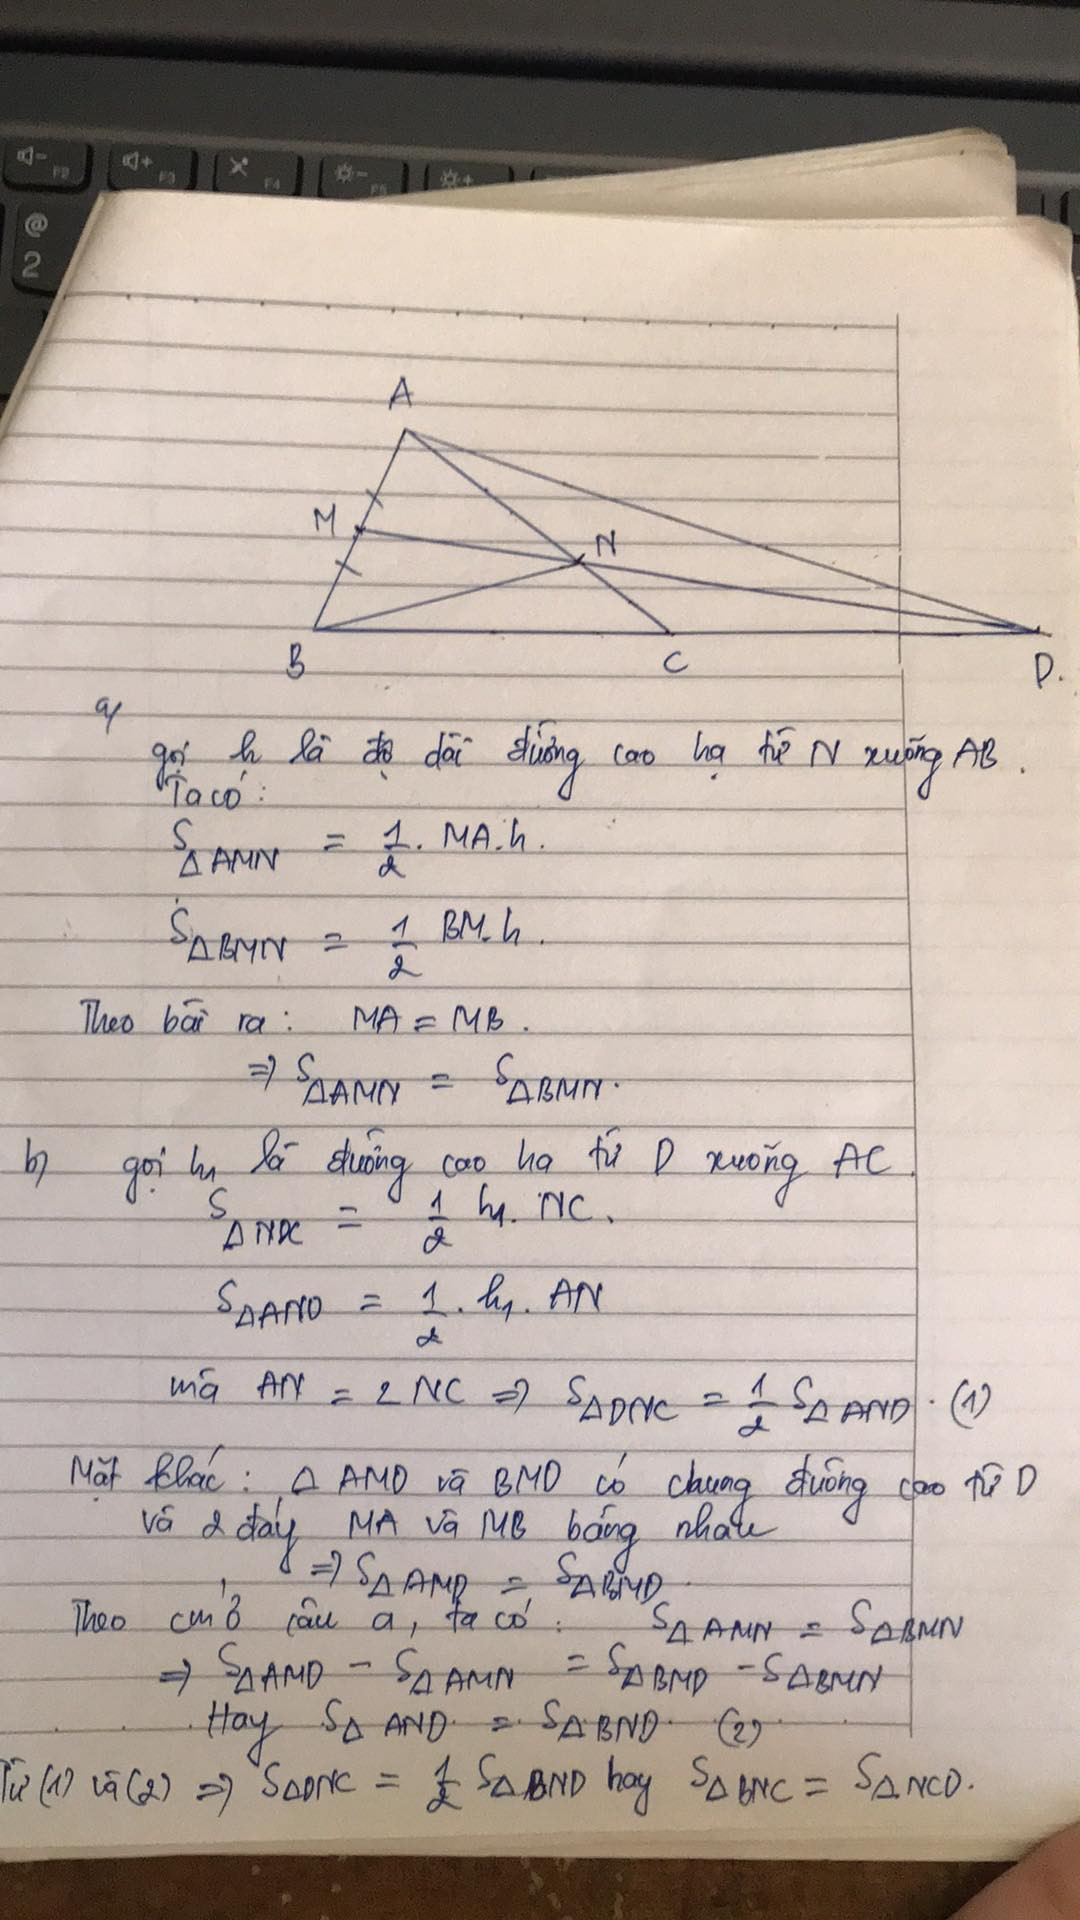 F2
F3
F4
F5
@
2
A
M
N
B
C
D.
a/
gọi h là độ dài đường cao hạ từ N xuống AB.
Ta có:
S△AMN = 1/2 . MA.h.
S△BMN = 1/2 BM.h.
Theo bài ra: MA = MB.
=> S△AMN = S△BMN.
b) gọi h1 là đường cao hạ từ D xuống AC.
S△NDC = 1/2 h1. NC.
S△AND = 1/2 . h1. AN
mà AN = 2 NC => S△DNC = 1/2 S△AND. (1)
Mặt khác: △ AMD và BMD có chung đường cao từ D
và 2 đáy MA và MB bằng nhau
=> S△AMD = S△BMD.
Theo cm ở câu a, ta có: S△AMN = S△BMN
=> S△AMD - S△AMN = S△BMD - S△BMN
Hay S△AND = S△BND (2)
Từ (1) và (2) => S△DNC = 1/2 S△BND hay S△BNC = S△NCD.